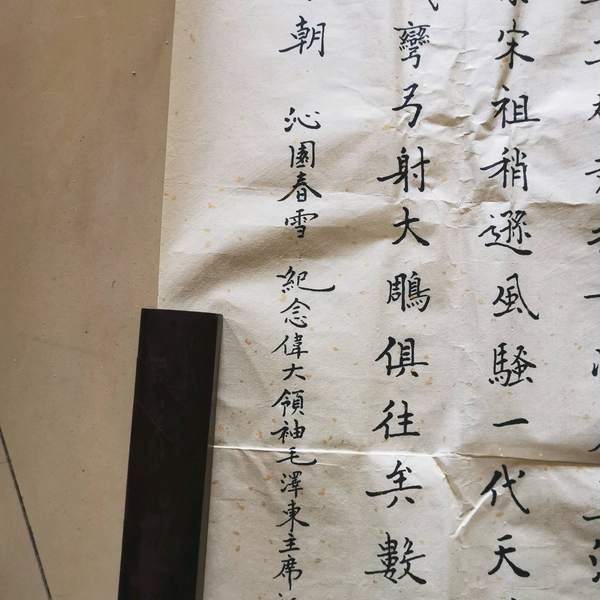 宋祖稍遜風騷一代天
彎弓射大鵰俱往矣數
朝 沁園春雪 紀念偉大領袖毛澤東主席